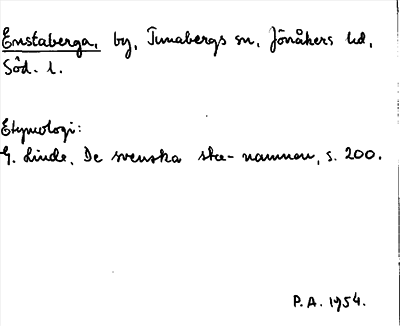 Enstaberga, by, Tunabergs sn, Jönåkers hd,
Söd. l.
Etymologi:
G. Linde, De svenska sta-namnen, s. 200.
P.A. 1954.